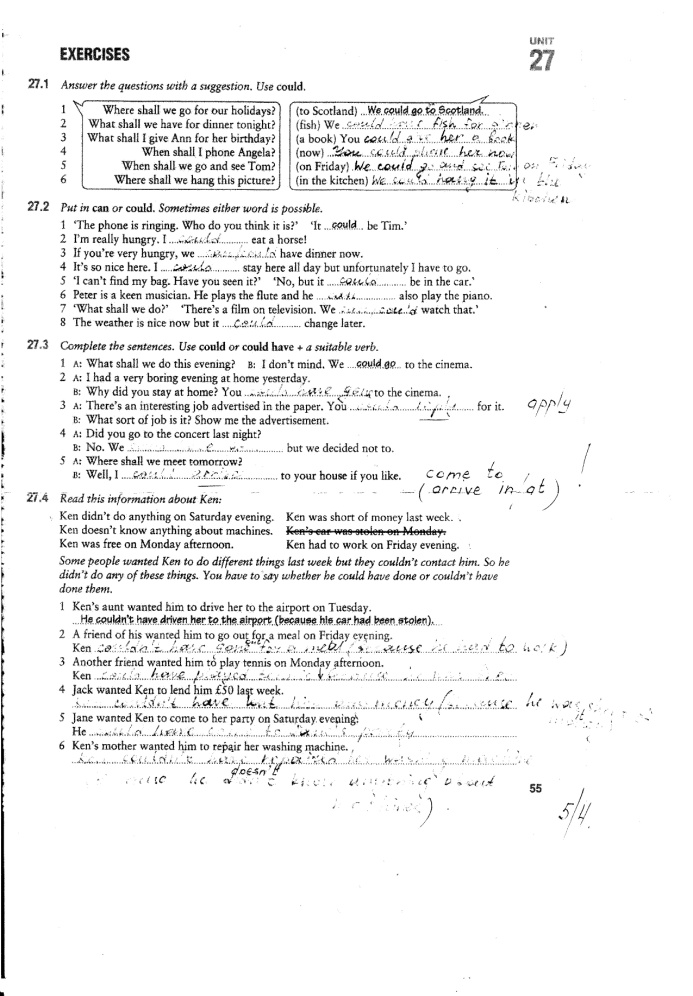 UNIT
27
EXERCISES
27.1 Answer the questions with a suggestion. Use could.
1 Where shall we go for our holidays? (to Scotland) We could go to Scotland.
2 What shall we have for dinner tonight? (fish) We could have fish for dinner
3 What shall I give Ann for her birthday? (a book) You could give her a book
4 When shall I phone Angela? (now) You could phone her now
5 When shall we go and see Tom? (on Friday) We could go and see Tom on Friday
6 Where shall we hang this picture? (in the kitchen) We could hang it in the
kitchen
27.2 Put in can or could. Sometimes either word is possible.
1 'The phone is ringing. Who do you think it is?' 'It ...could... be Tim.'
2 I'm really hungry. I ...could... eat a horse!
3 If you're very hungry, we ...can/could... have dinner now.
4 It's so nice here. I ...could... stay here all day but unfortunately I have to go.
5 'I can't find my bag. Have you seen it?' 'No, but it ...could... be in the car.'
6 Peter is a keen musician. He plays the flute and he ...can... also play the piano.
7 'What shall we do?' 'There's a film on television. We ... could watch that.'
8 The weather is nice now but it ...could... change later.
27.3 Complete the sentences. Use could or could have + a suitable verb.
1 A: What shall we do this evening? B: I don't mind. We ...could go... to the cinema.
2 A: I had a very boring evening at home yesterday.
B: Why did you stay at home? You ...could have gone to the cinema.
3 A: There's an interesting job advertised in the paper. You ...could ... for it. apply
B: What sort of job is it? Show me the advertisement.
4 A: Did you go to the concert last night?
B: No. We ... but we decided not to.
5 A: Where shall we meet tomorrow? !
B: Well, I ...could arrive... to your house if you like. come to
(arrive in at)
27.4 Read this information about Ken:
Ken didn't do anything on Saturday evening. Ken was short of money last week.
Ken doesn't know anything about machines. Ken's car was stolen on Monday.
Ken was free on Monday afternoon. Ken had to work on Friday evening.
Some people wanted Ken to do different things last week but they couldn't contact him. So he
didn't do any of these things. You have to say whether he could have done or couldn't have
done them.
1 Ken's aunt wanted him to drive her to the airport on Tuesday.
He couldn't have driven her to the airport (because his car had been stolen).
2 A friend of his wanted him to go out for a meal on Friday evening.
Ken couldn't have gone for a meal (because he had to work)
3 Another friend wanted him to play tennis on Monday afternoon.
Ken could have played
4 Jack wanted Ken to lend him £50 last week.
couldn't have lent him money (because he was
5 Jane wanted Ken to come to her party on Saturday evening.
He could have come to Jane's party
6 Ken's mother wanted him to repair her washing machine.
Ken couldn't have repaired her washing machine
doesn't
because he know anything about
machines)
55
5/4